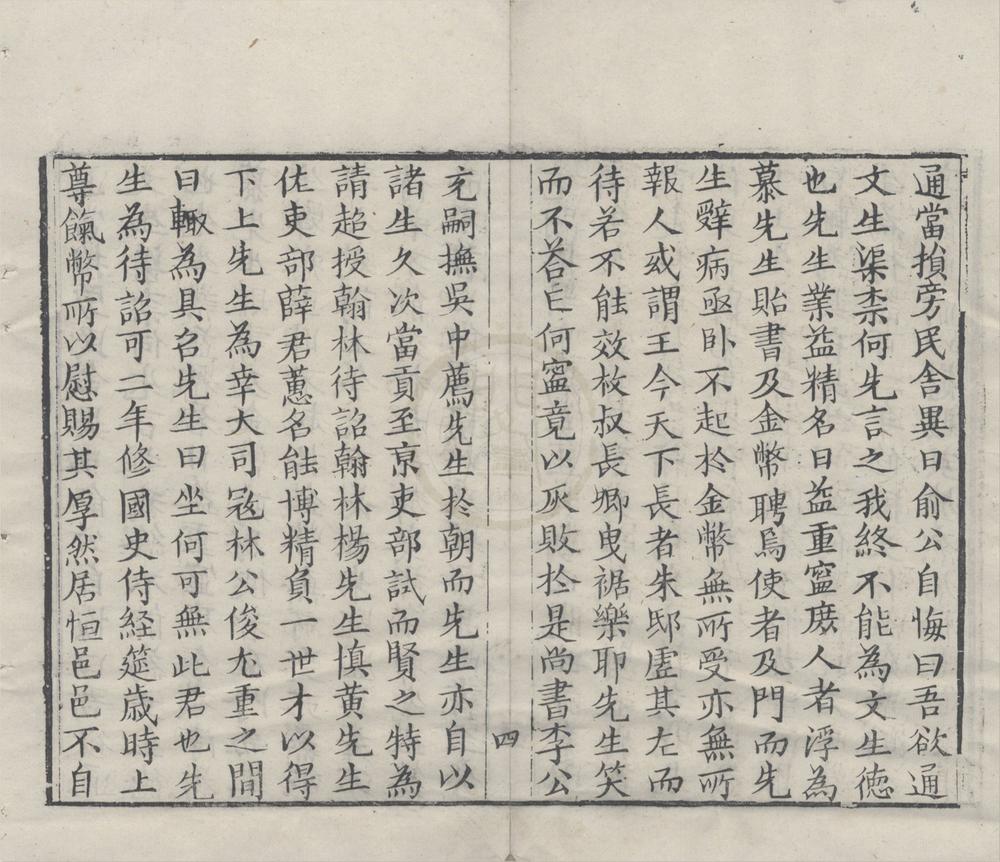 通當損旁民舍異日俞公自悔曰吾欲通
文生渠柰何先言之我終不能為文生德
也先生業益精名日益重寧庶人者浮為
慕先生貽書及金幣聘焉使者及門而先
生辭病亟卧不起於金幣無所受亦無所
報人或謂王今天下長者朱邸虛其左而
待若不能效枚叔長卿曳裾樂耶先生笑
而不荅亡何寧竟以灰敗於是尚書李公
四
充嗣撫吳中薦先生於朝而先生亦自以
諸生久次當貢至京吏部試而賢之特為
請超授翰林待詔翰林楊先生慎黃先生
佐吏部薛君蕙名能博精負一世才以得
下上先生為幸大司寇林公俊尤重之間
日輙為具召先生曰坐何可無此君也先
生為待詔可二年修國史侍経筵歳時上
尊餼幣所以慰賜其厚然居恒邑邑不自